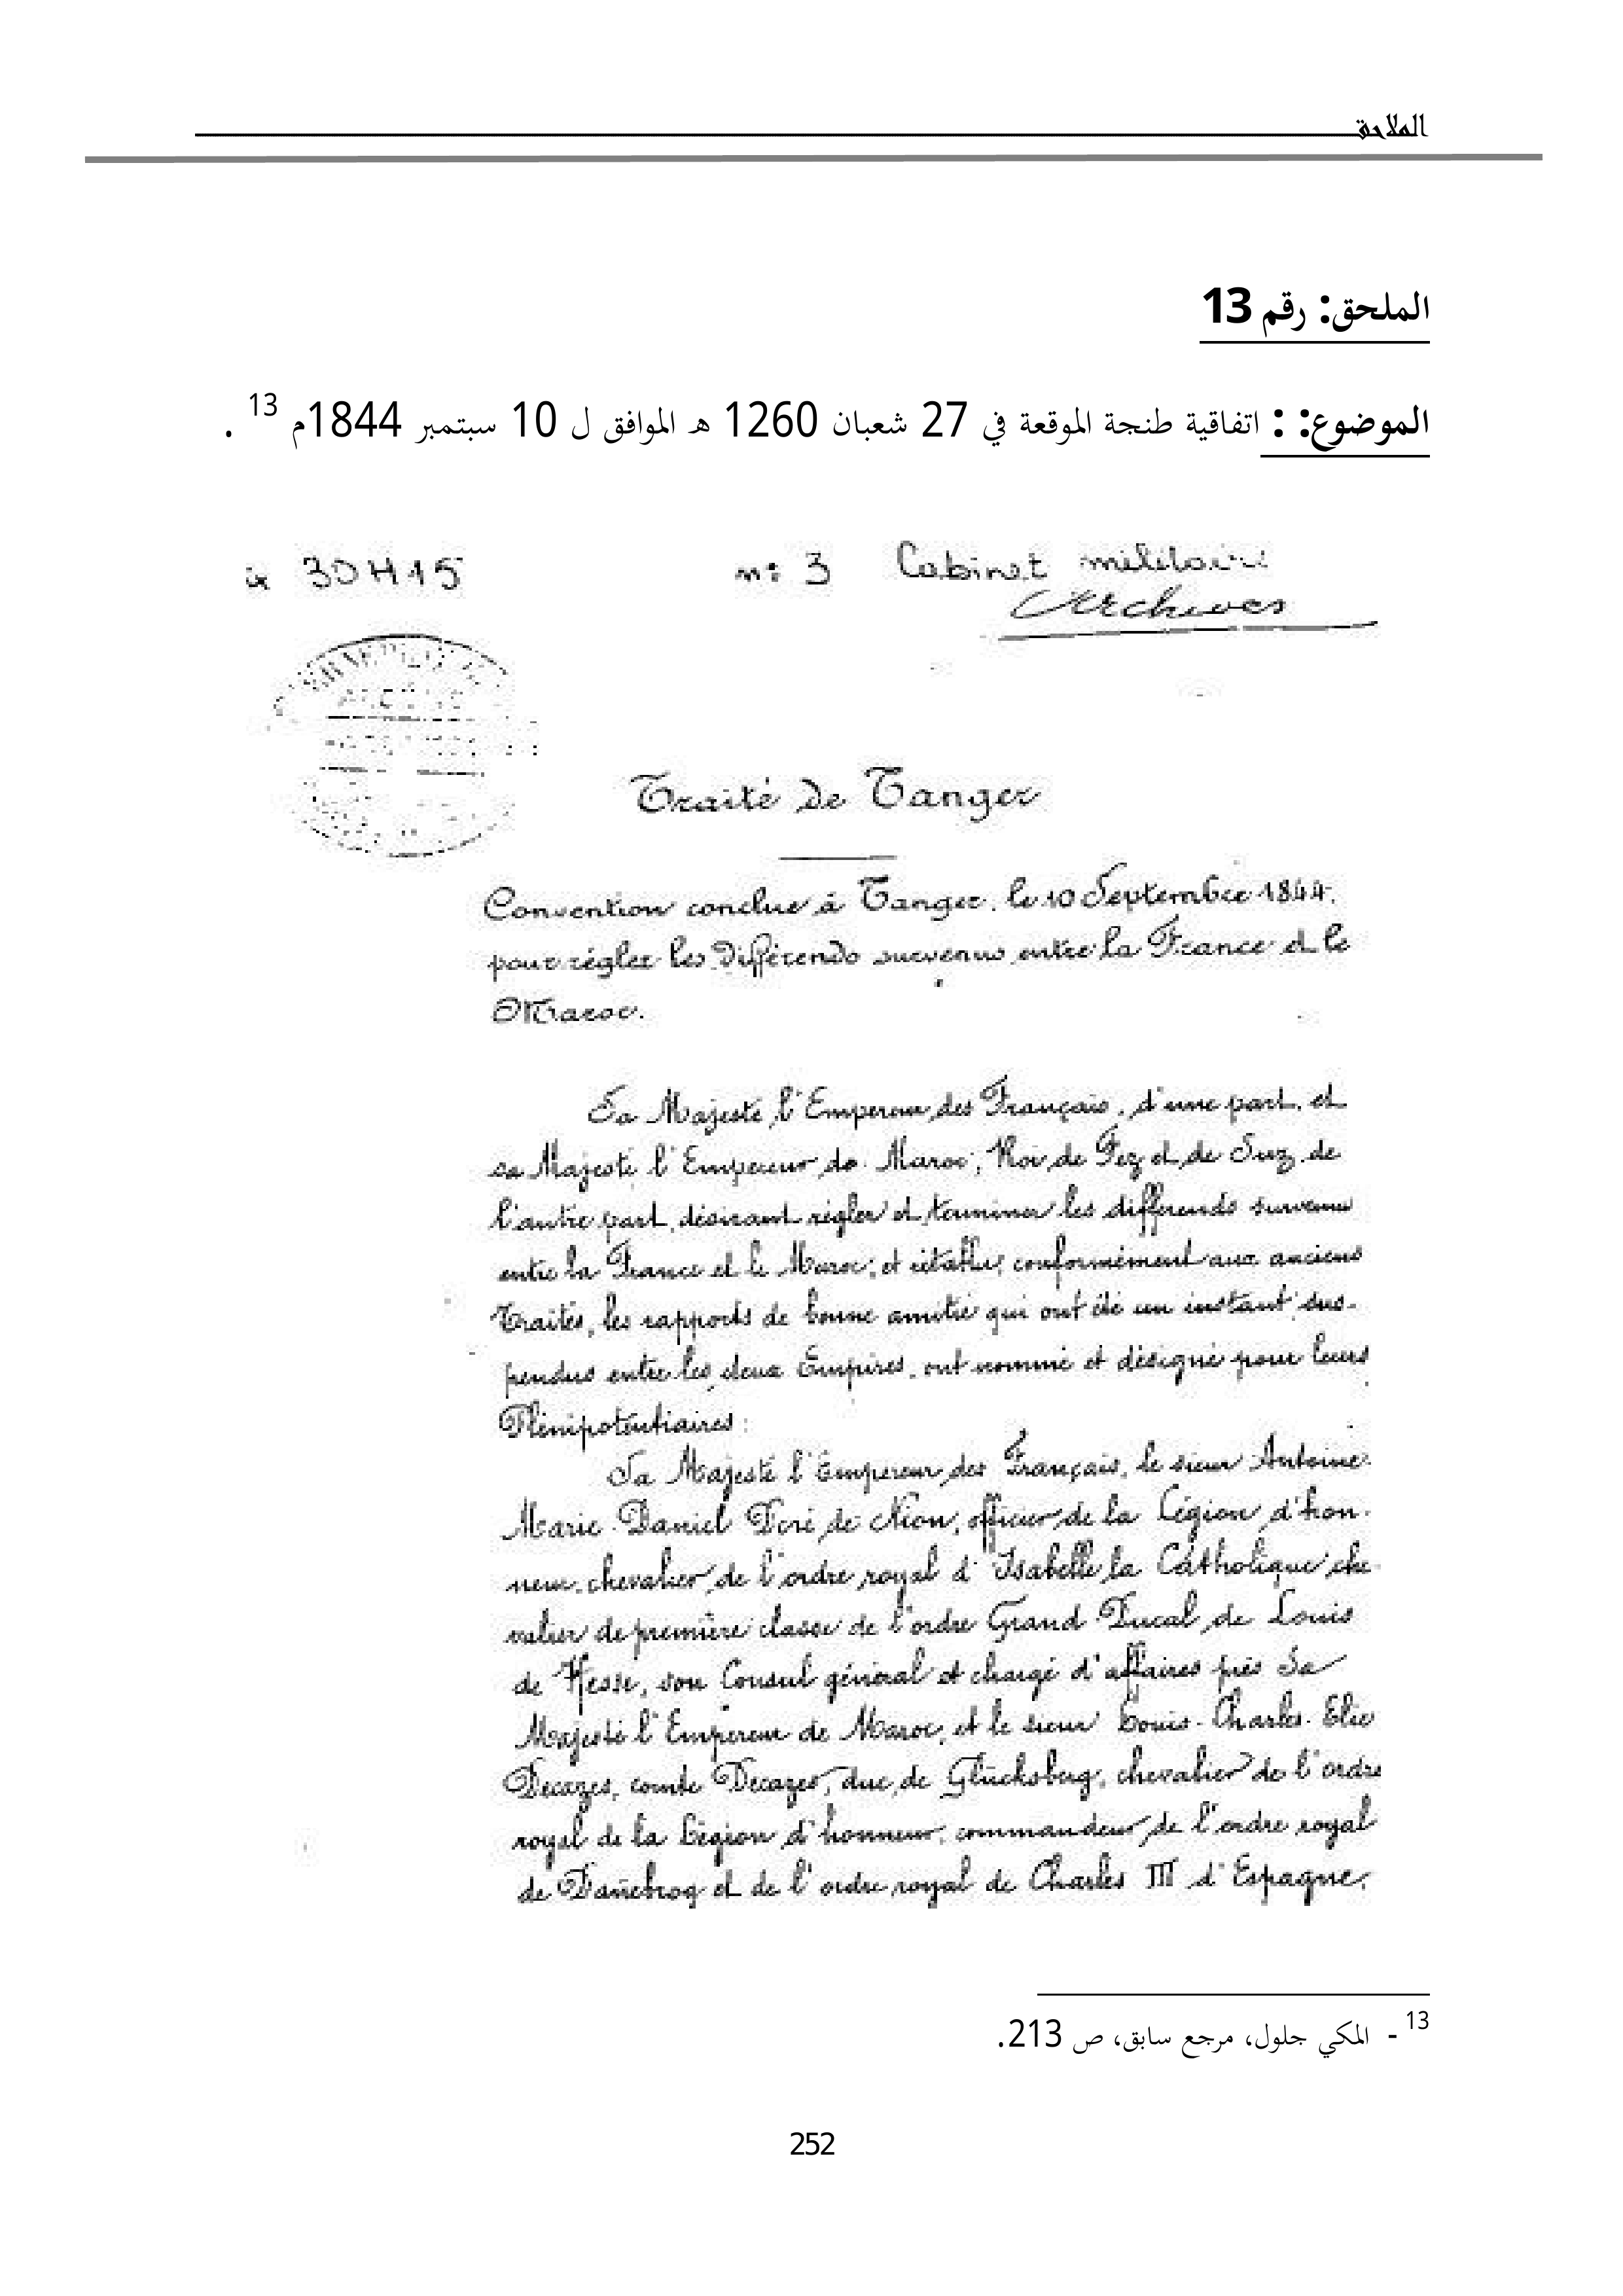 الملاحق
الملحق: رقم 13
الموضوع: : اتفاقية طنجة الموقعة في 27 شعبان 1260 هـ الموافق ل 10 سبتمبر 1844م 13 .
30H15 n: 3 Cabinet militaire
Archives
Traité de Tanger
Convention conclue à Tanger, le 10 Septembre 1844,
pour régler les différends survenus entre la France et le
Maroc.
Sa Majesté l'Empereur des Français, d'une part, et
sa Majesté l'Empereur de Maroc, Roi de Fez et de Suz de
l'autre part, désirant régler et terminer les différends survenus
entre la France et le Maroc, et rétablir, conformément aux anciens
Traités, les rapports de bonne amitié qui ont été un instant sus-
pendus entre les deux Empires, ont nommé et désigné pour leurs
Plénipotentiaires :
Sa Majesté l'Empereur des Français, le sieur Antoine-
Marie-Daniel Doré de Nion, officier de la Légion d'hon-
neur, chevalier de l'ordre royal d'Isabelle la Catholique, che-
valier de première classe de l'ordre Grand Ducal de Louis
de Hesse, son Consul général et chargé d'affaires près Sa
Majesté l'Empereur de Maroc, et le sieur Louis-Charles-Elie
Decazes, comte Decazes, duc de Glücksberg, chevalier de l'ordre
royal de la Légion d'honneur, commandeur de l'ordre royal
de Danebrog et de l'ordre royal de Charles III d'Espagne,
13 - المكي جلول، مرجع سابق، ص 213.
252